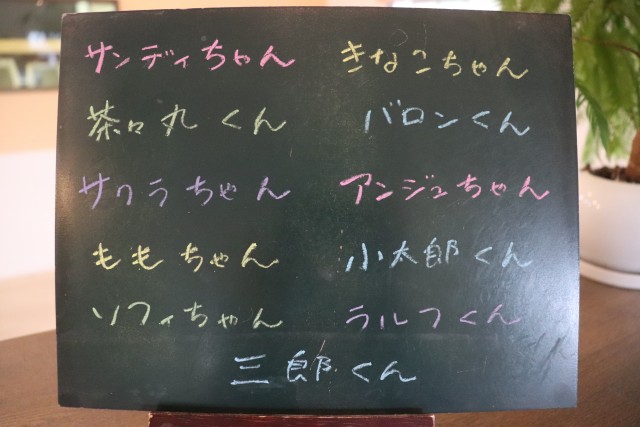 サンディちゃん きなこちゃん
茶々丸くん バロンくん
サクラちゃん アンジュちゃん
ももちゃん 小太郎くん
ソフィちゃん ラルフくん
三郎くん